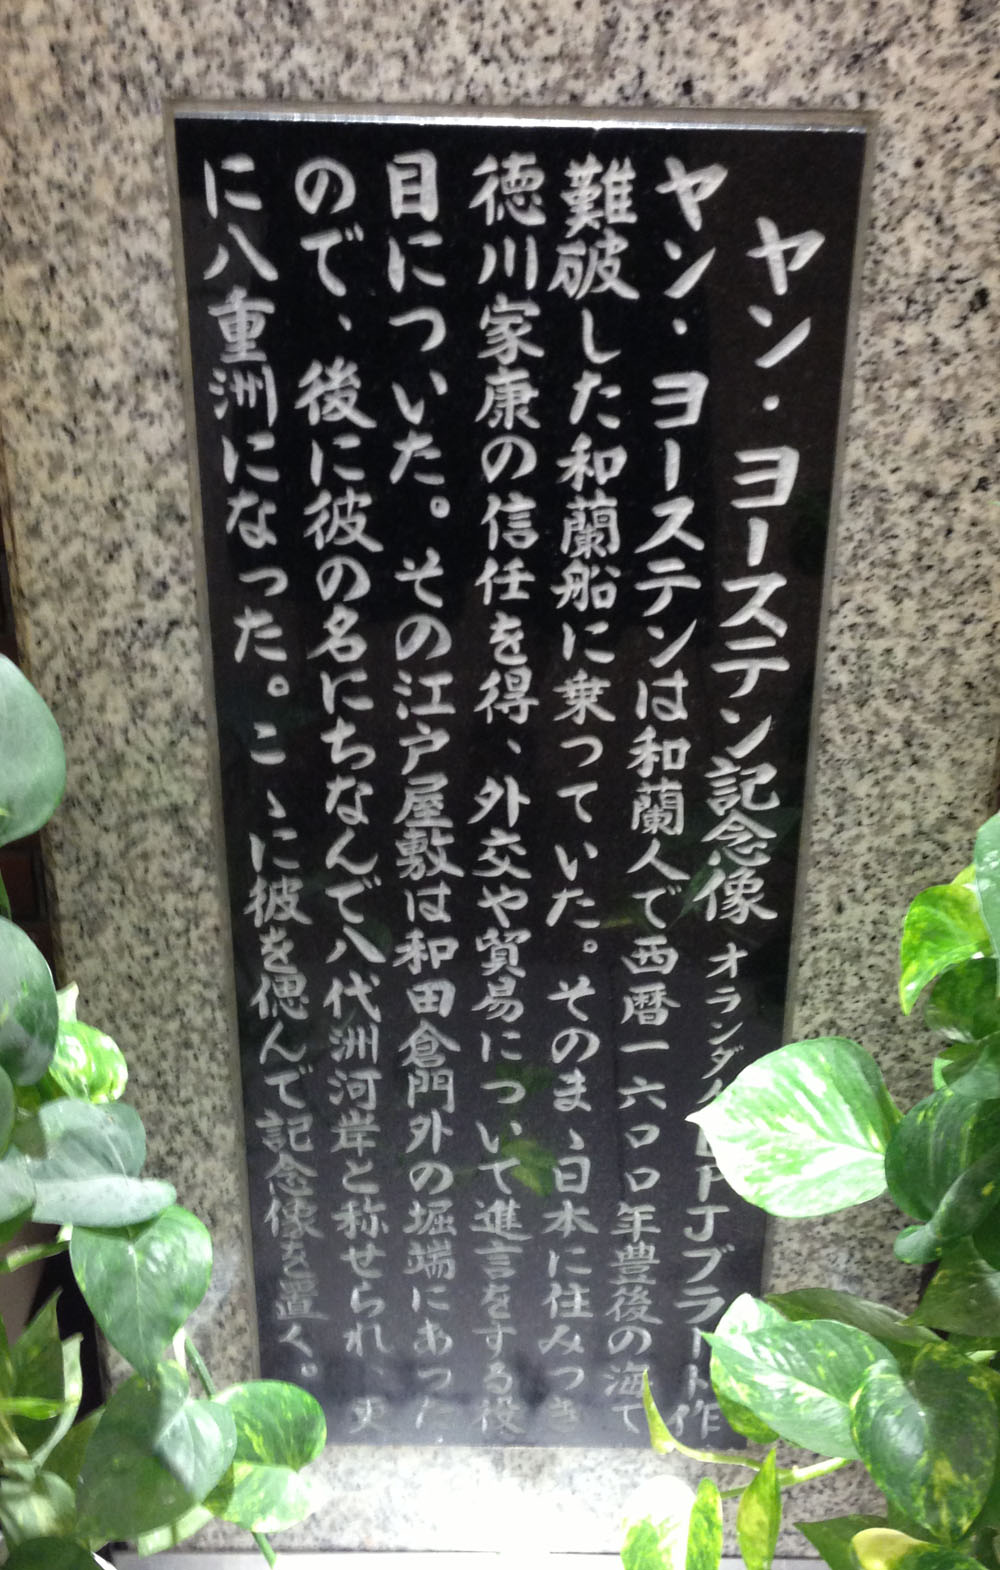 ヤン・ヨーステン記念像 オランダ人 PJブラート作
ヤン・ヨーステンは和蘭人で西暦一六〇〇年豊後の海で
難破した和蘭船に乗っていた。そのまゝ日本に住みつき
徳川家康の信任を得、外交や貿易について進言をする役
目についた。その江戸屋敷は和田倉門外の堀端にあった
ので、後に彼の名にちなんで八代洲河岸と称せられ、更
に八重洲になった。こゝに彼を偲んで記念像を置く。